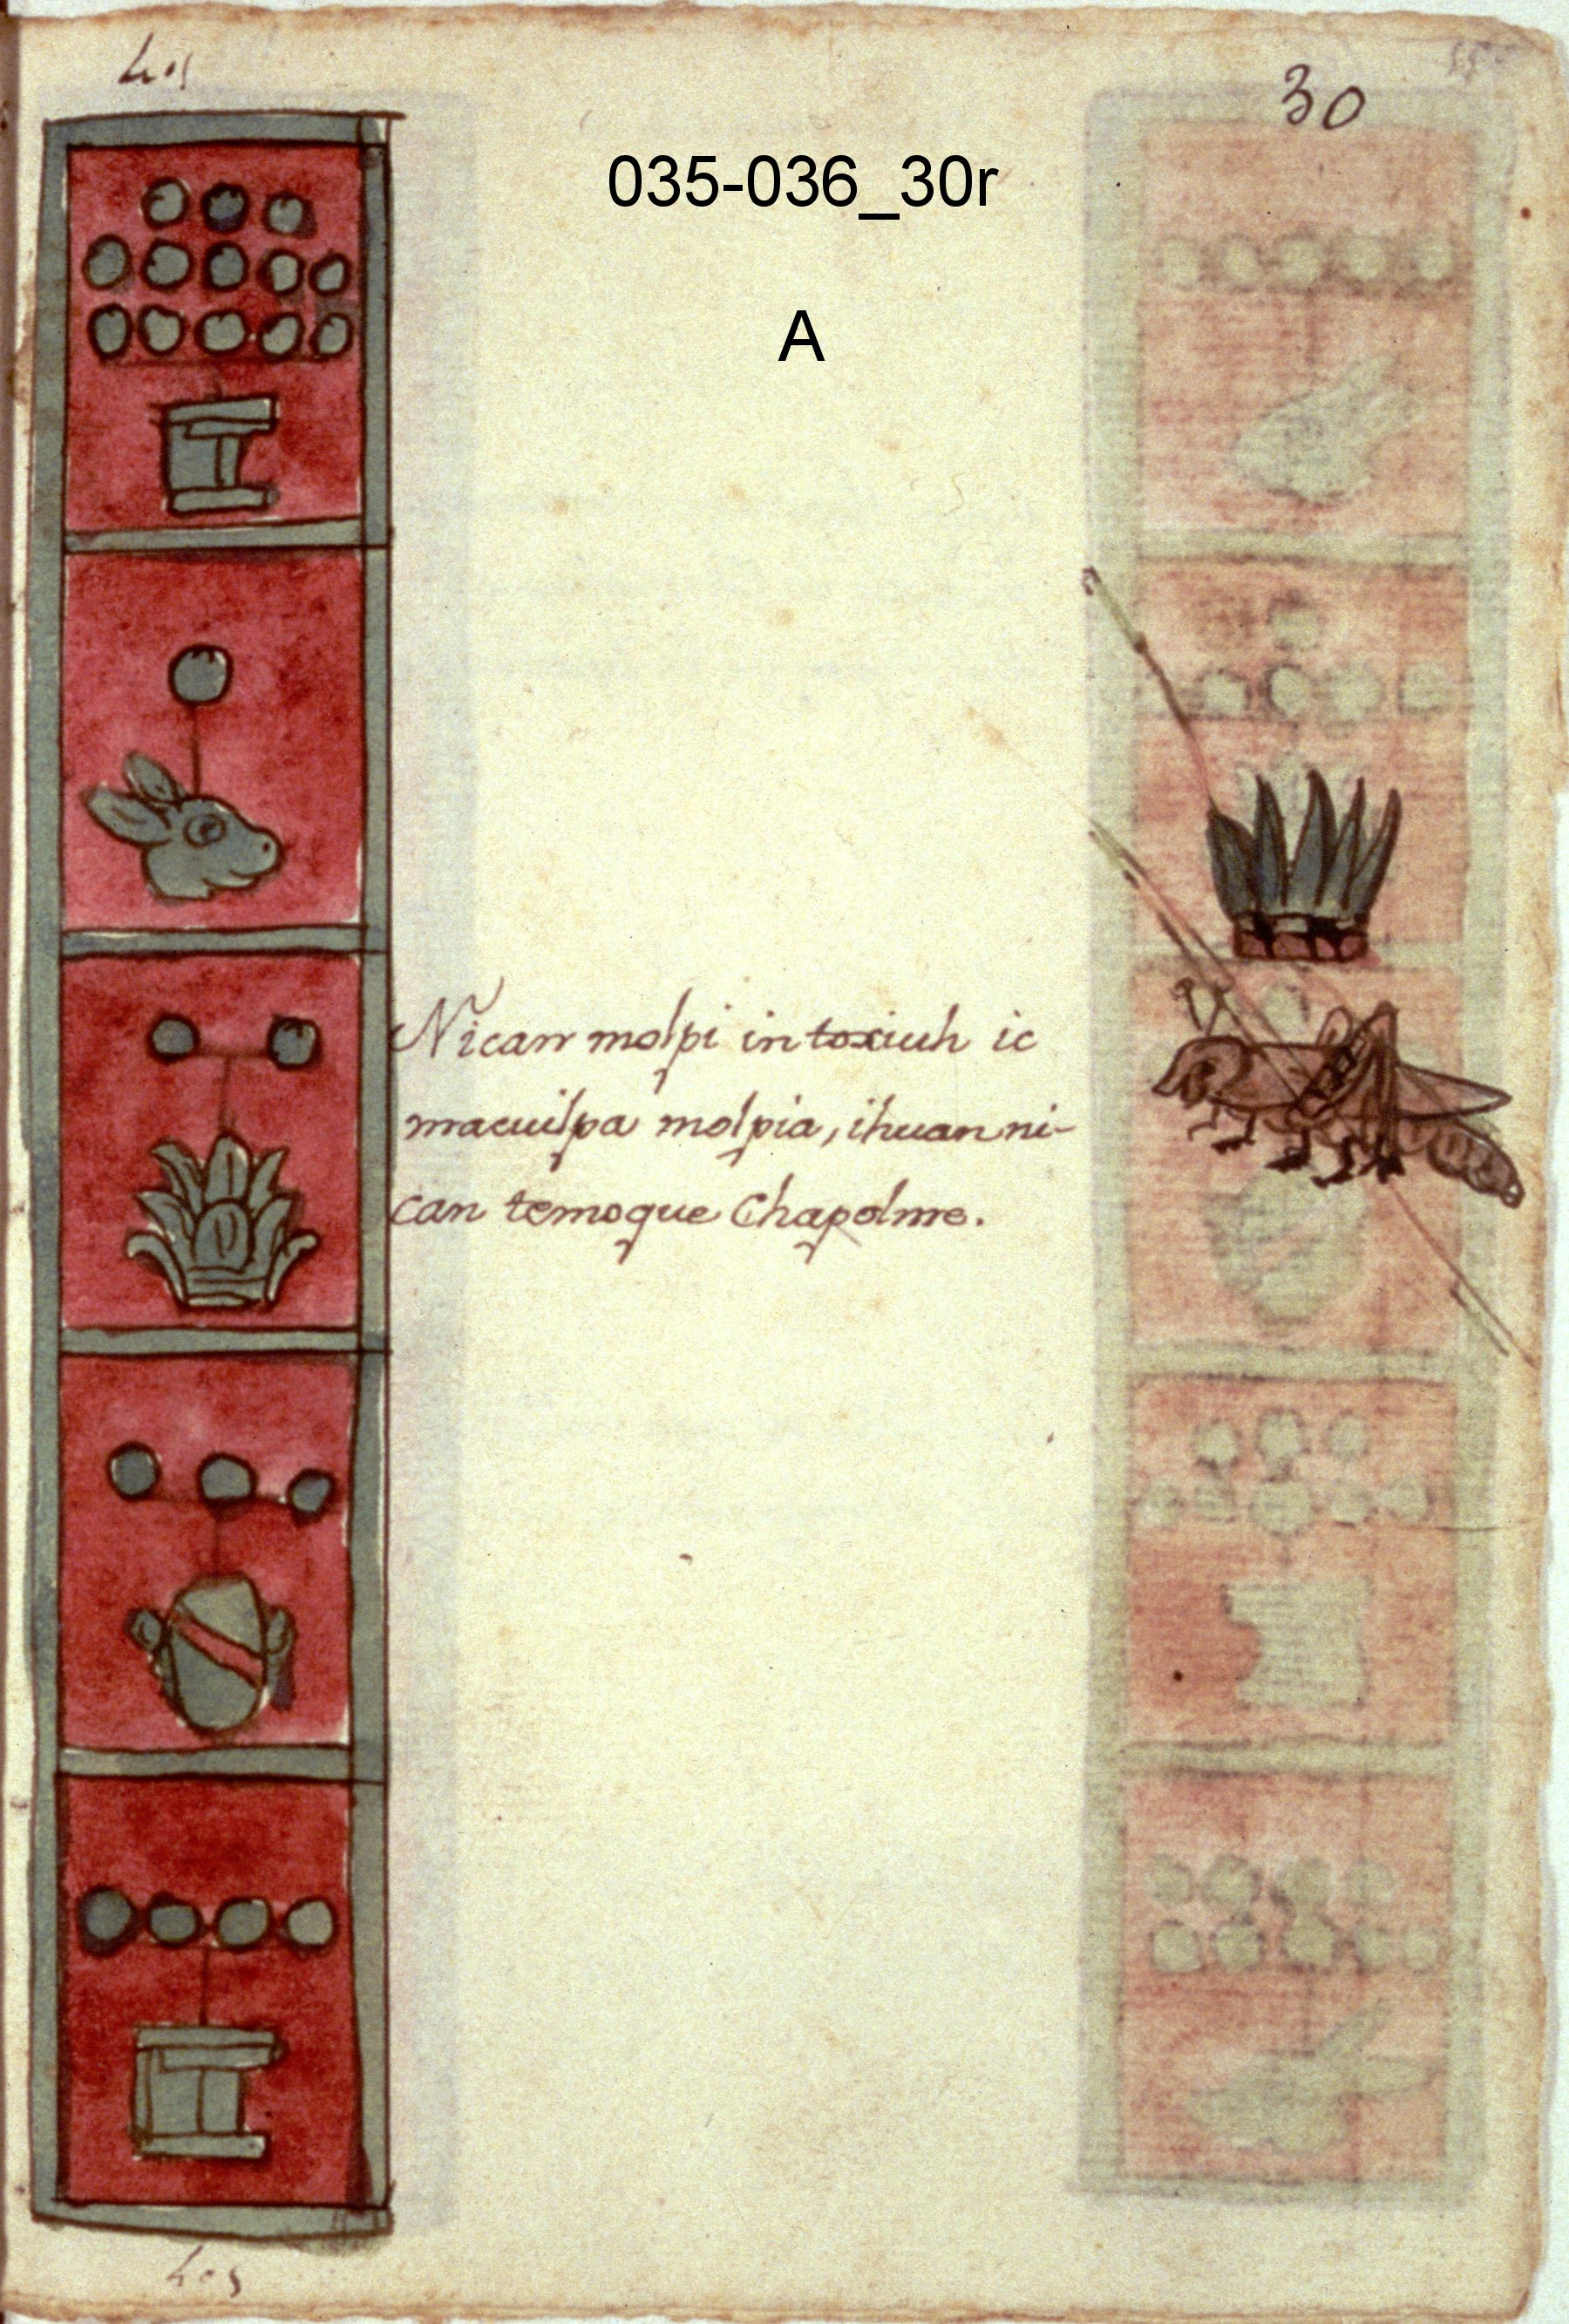 401
30
55
035-036_30r
A
Nican molpi in toxiuh ic
macuilpa molpia, ihuan ni-
can temoque Chapolme.
405